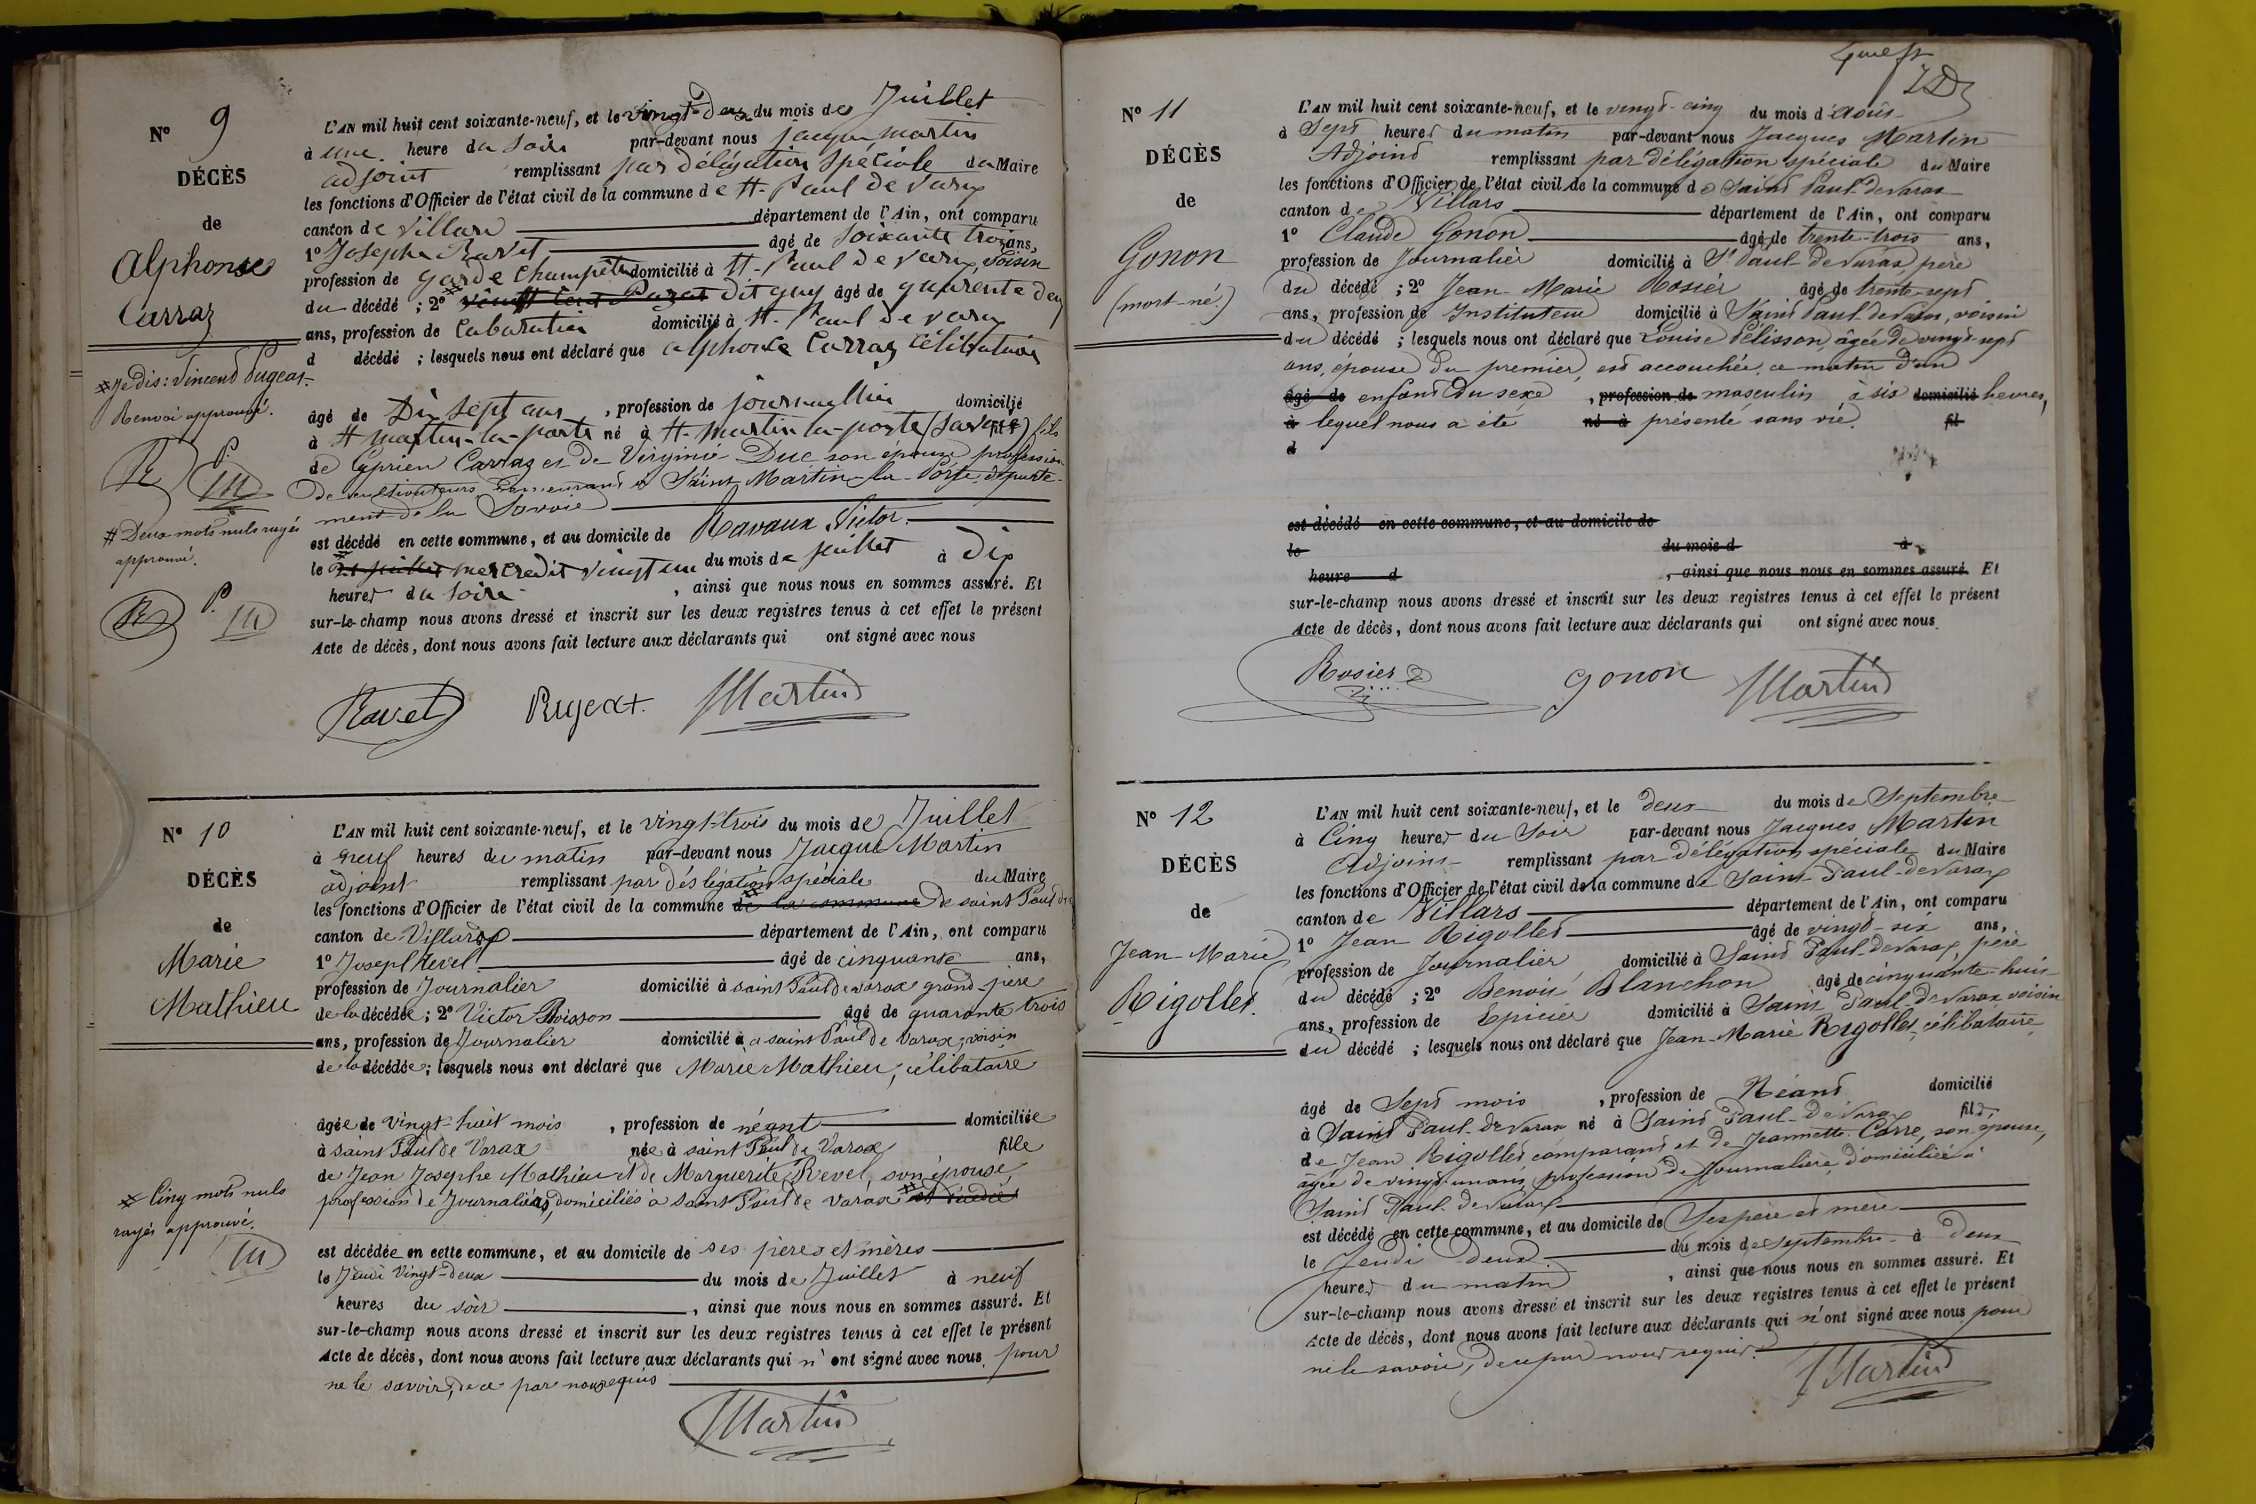 N° 9
DÉCÈS
de
Alphonse
Carraz
# Je dis: Vincend Pugeat.
Renvoi approuvé.
# Deux mots nuls rayés
approuvé.
L'AN mil huit cent soixante-neuf, et le vingt-deux du mois de Juillet
à une heure du soir par-devant nous jacque martin
adjoint remplissant par délégation spéciale du Maire
les fonctions d'Officier de l'état civil de la commune de St-Paul de Varax
canton de Villars département de l'Ain, ont comparu
1° Josephe Ravet âgé de soixante trois ans,
profession de garde champêtre domicilié à St-Paul de varax, voisin
du décédé ; 2° dit guy âgé de quarente deux
ans, profession de Cabaratier domicilié à St-Paul de varax
d décédé ; lesquels nous ont déclaré que alphonse Carraz Célibataire
âgé de Dix sept ans , profession de journallier domicilié
à St martin-la-porte né à St-martin la-porte (Savoie) fils
de Cyprien Carraz et de Virginie Duc son épouse profession
de cultivateurs demeurant à Saint Martin-la-Porte, départe-
ment de la Savoie
est décédé en cette commune, et au domicile de Ravaux Victor.
le 21 juillet mercredit vingt un du mois de juillet à dix
heures du soire , ainsi que nous nous en sommes assuré. Et
sur-le-champ nous avons dressé et inscrit sur les deux registres tenus à cet effet le présent
Acte de décès, dont nous avons fait lecture aux déclarants qui ont signé avec nous
Ravet Pugeat Martin
N° 10
DÉCÈS
de
Marie
Mathieu
# Cinq mots nuls
rayés approuvé.
L'AN mil huit cent soixante-neuf, et le vingt-trois du mois de Juillet
à neuf heures du matin par-devant nous Jacque Martin
adjoint remplissant par déslégation spéciale du Maire
les fonctions d'Officier de l'état civil de la commune de la commune de saint Paul de
canton de Villars département de l'Ain, ont comparu
1° Joseph Revel âgé de cinquante ans,
profession de Journalier domicilié à saint Paul de varax grand-père
de la décédée ; 2° Victor Poisson âgé de quarante trois
ans, profession de Journalier domicilié à a saint Paul de Varax, voisin
de la décédée ; lesquels nous ont déclaré que Marie Mathieu, célibataire
âgée de vingt-huit mois , profession de néant domiciliée
à saint Paul de Varax née à saint Paul de Varax fille
de Jean Josephe Mathieu et de Marguerite Revel, son épouse,
profession de Journaliers, domiciliés à Saint Paul de Varax est décédée
est décédée en cette commune, et au domicile de ses pères et mères
le Jeudi vingt-deux du mois de Juillet à neuf
heures du soir , ainsi que nous nous en sommes assuré. Et
sur-le-champ nous avons dressé et inscrit sur les deux registres tenus à cet effet le présent
Acte de décès, dont nous avons fait lecture aux déclarants qui n'ont signé avec nous pour
ne le savoir, de ce par nous requis
Martin
N° 11
DÉCÈS
de
Gonon
(mort-né.)
L'AN mil huit cent soixante-neuf, et le vingt-cinq du mois d'Août
à Sept heures du matin par-devant nous Jacques Martin
Adjoint remplissant par délégation spéciale du Maire
les fonctions d'Officier de l'état civil de la commune de Saint Paul-de Varax
canton de Villars département de l'Ain, ont comparu
1° Claude Gonon âgé de trente-trois ans,
profession de Journalier domicilié à St Paul-de Varax, père
du décédé ; 2° Jean-Marie Rosier âgé de trente-sept
ans, profession de Instituteur domicilié à Saint Paul-de Varax, voisin
du décédé ; lesquels nous ont déclaré que Louise Pélisson, âgée de vingt-sept
ans, épouse du premier, est accouchée, ce matin d'un
âgé de enfant du sexe , profession de masculin à six domicilié heures,
à lequel nous a été né à présenté sans vie. fil
d
est décédé en cette commune, et au domicile de
le du mois d à
heure d , ainsi que nous nous en sommes assuré. Et
sur-le-champ nous avons dressé et inscrit sur les deux registres tenus à cet effet le présent
Acte de décès, dont nous avons fait lecture aux déclarants qui ont signé avec nous
Rosier gonon Martin
N° 12
DÉCÈS
de
Jean-Marie
Rigollet.
L'AN mil huit cent soixante-neuf, et le deux du mois de Septembre
à Cinq heures du Soir par-devant nous Jacques Martin
Adjoint remplissant par délégation spéciale du Maire
les fonctions d'Officier de l'état civil de la commune de Saint-Paul-de Varax
canton de Villars département de l'Ain, ont comparu
1° Jean Rigollet âgé de vingt-six ans,
profession de Journalier domicilié à Saint Paul-de Varax, père
du décédé ; 2° Benoit Blanchon âgé de cinquante-huit
ans, profession de Epicier domicilié à Saint Paul-de Varax voisin
du décédé ; lesquels nous ont déclaré que Jean-Marie Rigollet, célibataire
âgé de Sept mois , profession de Néant domicilié
à Saint Paul-de Varax né à Saint Paul-de Varax fils
de Jean Rigollet comparant et de Jeannette Carre, son épouse,
âgée de vingt-un ans, profession de Journalière, domiciliée à
Saint Paul-de Varax
est décédé en cette commune, et au domicile de Ses père et mère
le Jeudi deux du mois de Septembre à Deux
heures du matin , ainsi que nous nous en sommes assuré. Et
sur-le-champ nous avons dressé et inscrit sur les deux registres tenus à cet effet le présent
Acte de décès, dont nous avons fait lecture aux déclarants qui n'ont signé avec nous pour
ne le savoir, de ce par nous requis.
Martin